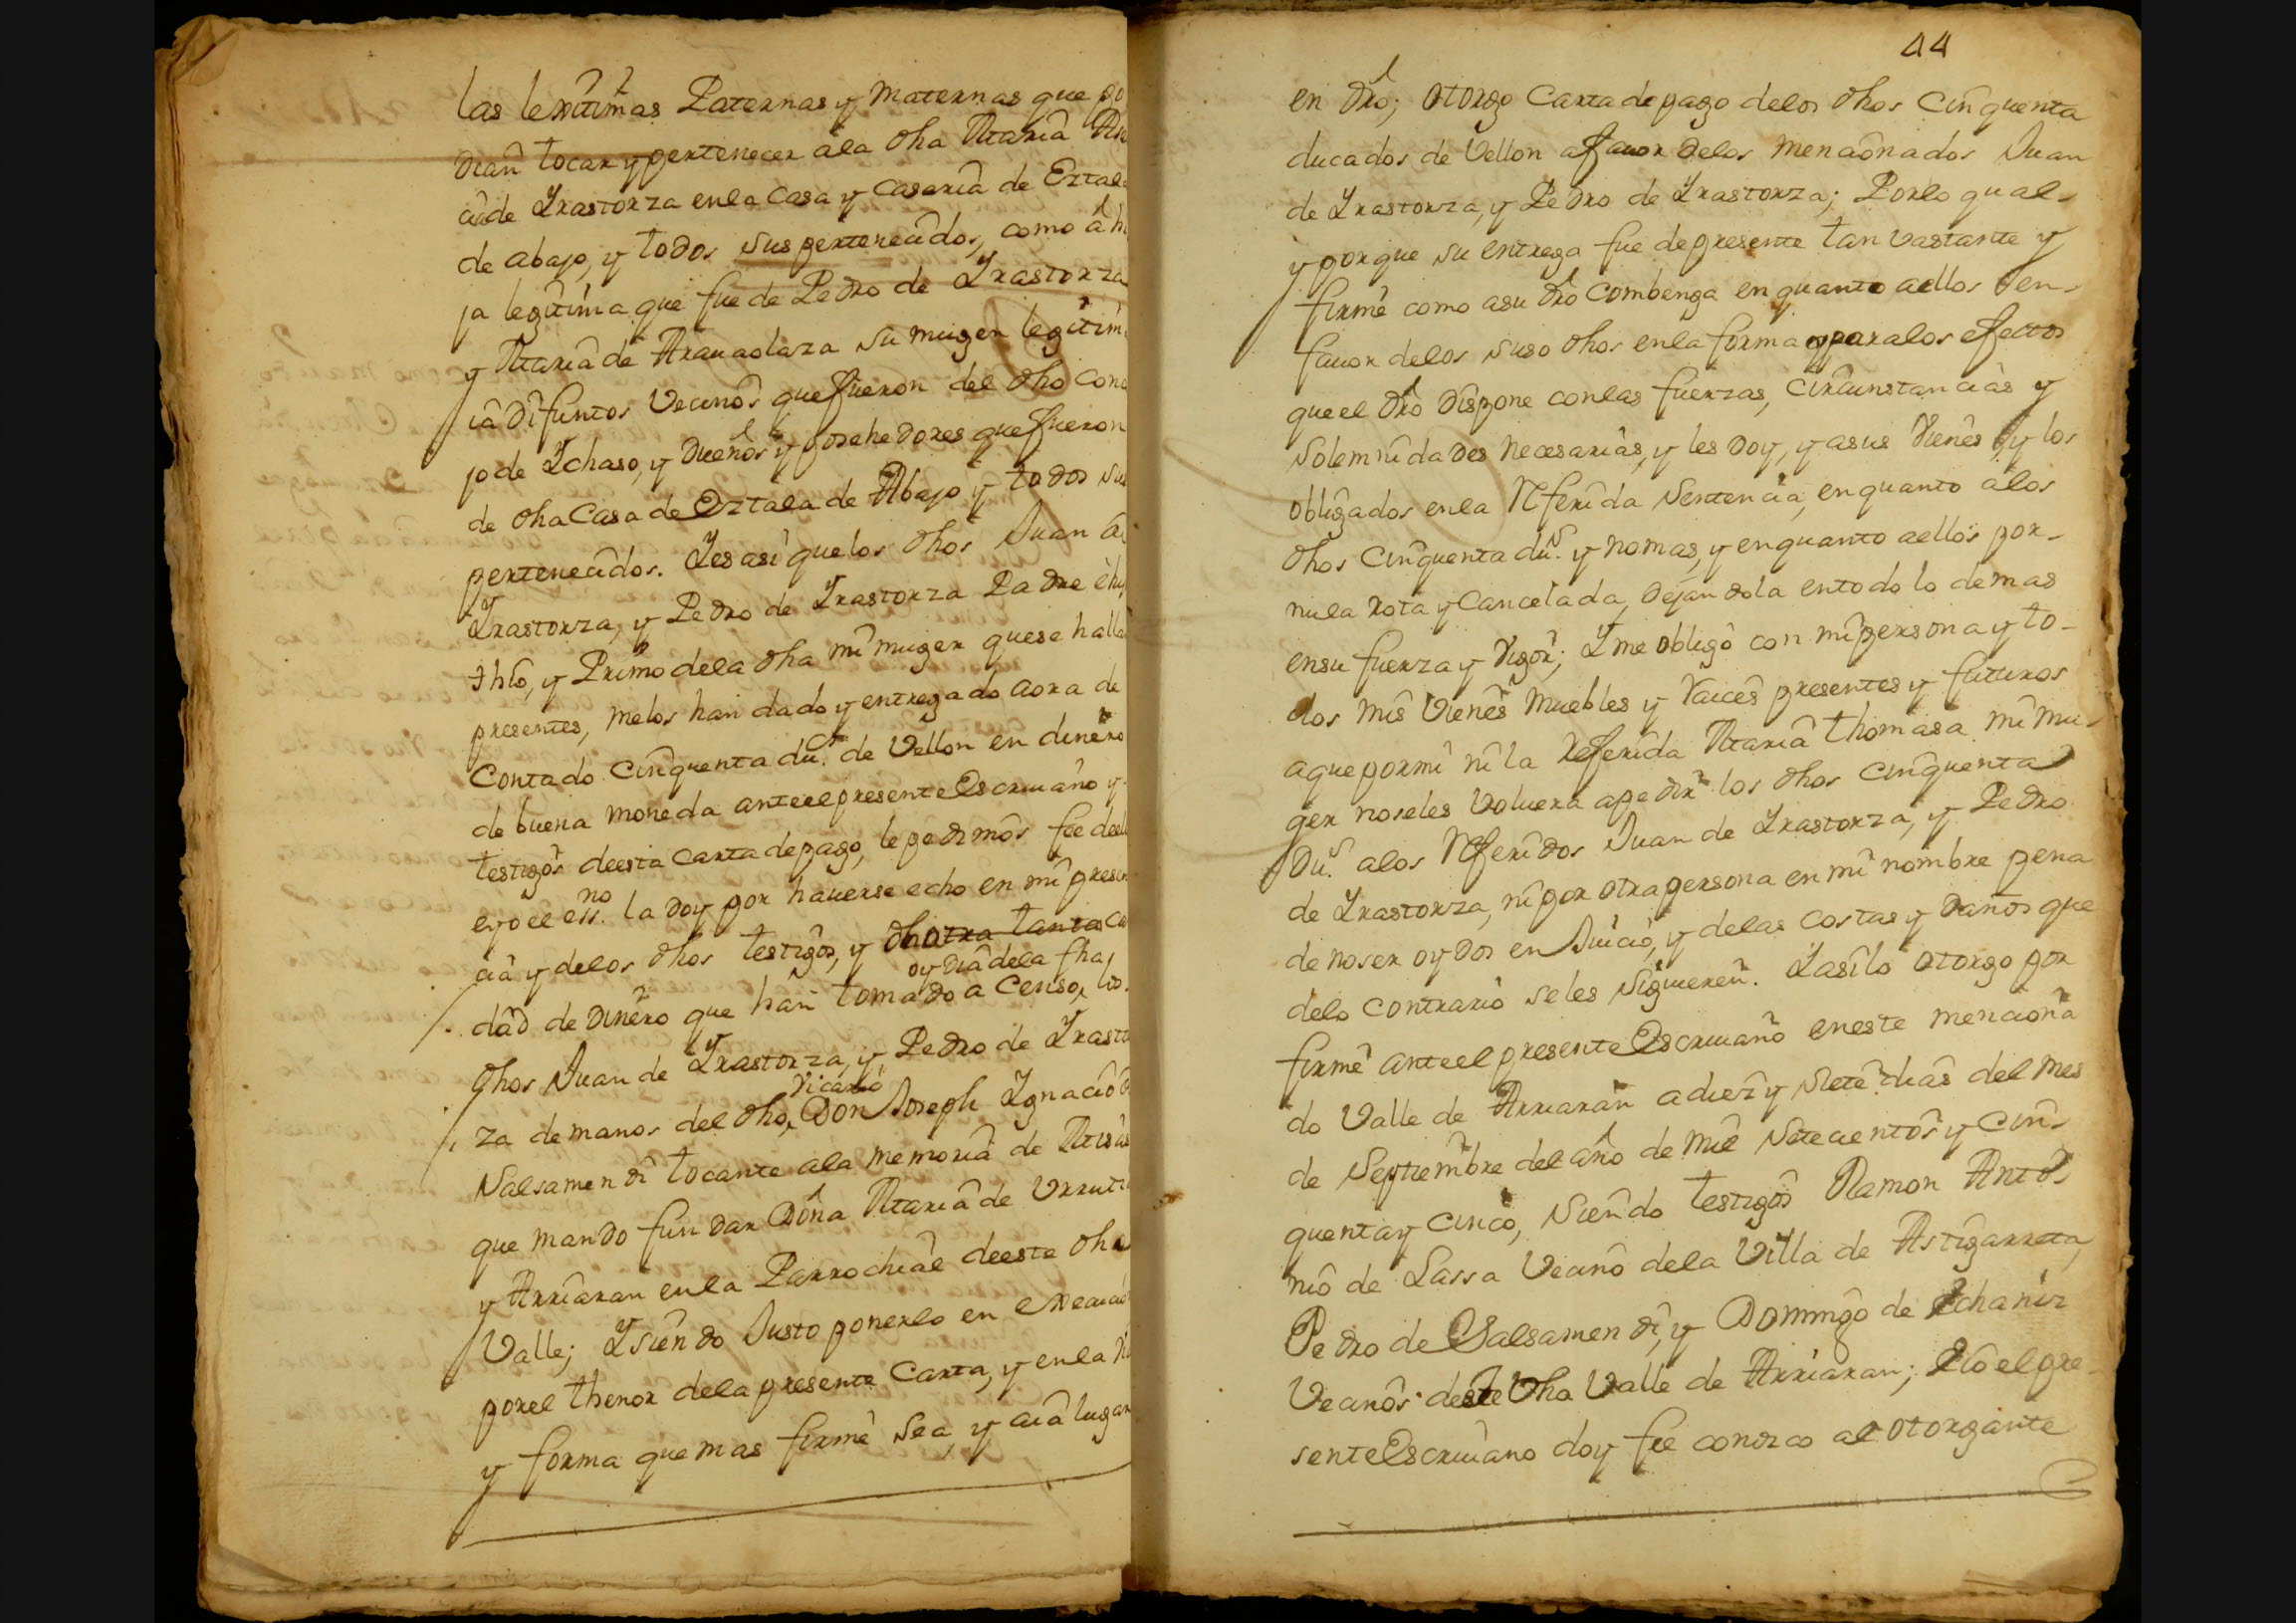 las lexitimas Paternas y Maternas que po
dian tocar y pertenecer ala dha Maria
cia de Yrastorza enla Casa y Caseria de Eztala
de abajo, y todos sus pertenecidos, como â hi
ja legitima que fue de Pedro de Yrastorza
y Maria de Arauaolaza su muger legitim
ia difuntos Vecinos que fueron del dho conce
jo de Ychaso, y Dueños y posehedores que fueron
de dha Casa de Eztala de Abajo y todos sus
pertenecidos. Y es asi que los dhos Juan de
Yrastorza, y Pedro de Yrastorza Padre è hijo
thio, y Primo dela dha mi muger que se hallan
presentes, me los han dado y entregado aora de
Contado Cinquenta dus. de Vellon en dinero
de buena moneda ante el presente Escriuano y
testigos deesta Carta de pago, le pedimos fee deello
e yo el essno. la doy por hauerse echo en mi presen
cia y delos dhos testigos, y dha otra tanta can
oy dia dela fha,
dad de Dinero que han tomado a Censo, los
dhos Juan de Yrastorza, y Pedro de Yrastor
Vicario
za de manos del dho, Don Joseph Ygnacio de
Salsamendi tocante ala memoria de Misas
que mando fundar Doña Maria de Urrutia
y Arriaran en la Parrochial deeste dho
Valle; Y siendo Justo ponerlo en execucion
por el thenor dela presente Carta, y en la Via
y forma que mas firme sea, y aia lugar
44
en dro; otorgo Carta de pago delos dhos Cinquenta
ducados de Vellon a fauor delos mencionados Juan
de Yrastorza, y Pedro de Yrastorza; Por lo qual
y porque su entrega fue de presente tan vastante y
firme como a su dro combenga en quanto a ellos den
fauor delos suso dhos en la forma y para los efectos
que el dro dispone con las fuerzas, Circunstancias y
Solemnidades necesarias, y les doy, y a sus Vienes y los
obligados en la Referida Sentencia, en quanto alos
dhos Cinquenta dus. y no mas, y en quanto a ellos por
nula Rota y Cancelada, Dejandola en todo lo demas
en su fuerza y Vigor; Y me obligo con mi persona y to-
dos mis Vienes Muebles y Raices presentes y futuros
a que por mi ni la Referida Maria thomasa mi mu-
ger no se les Voluera a pedir los dhos Cinquenta
Dus. alos Referidos Juan de Yrastorza, y Pedro
de Yrastorza, ni por otra persona en mi nombre pena
de no ser oydos en Juicio, y delas Costas y Daños que
delo contrario se les siguieren. Y asi lo otorgo por
firme ante el presente Escriuano en este menciona
do Valle de Arriaran a diez y siete dias del mes
de Septiembre del año de mil Setecientos y Cin-
quenta y Cinco, Siendo testigos Ramon Anto
nio de Lassa Vecino dela Villa de Astigarreta,
Pedro de Salsamendi, y Domingo de Echaniz
Vecinos deste dha Valle de Arriaran; E Yo el pre-
sente Escriuano doy fee conozco al otorgante